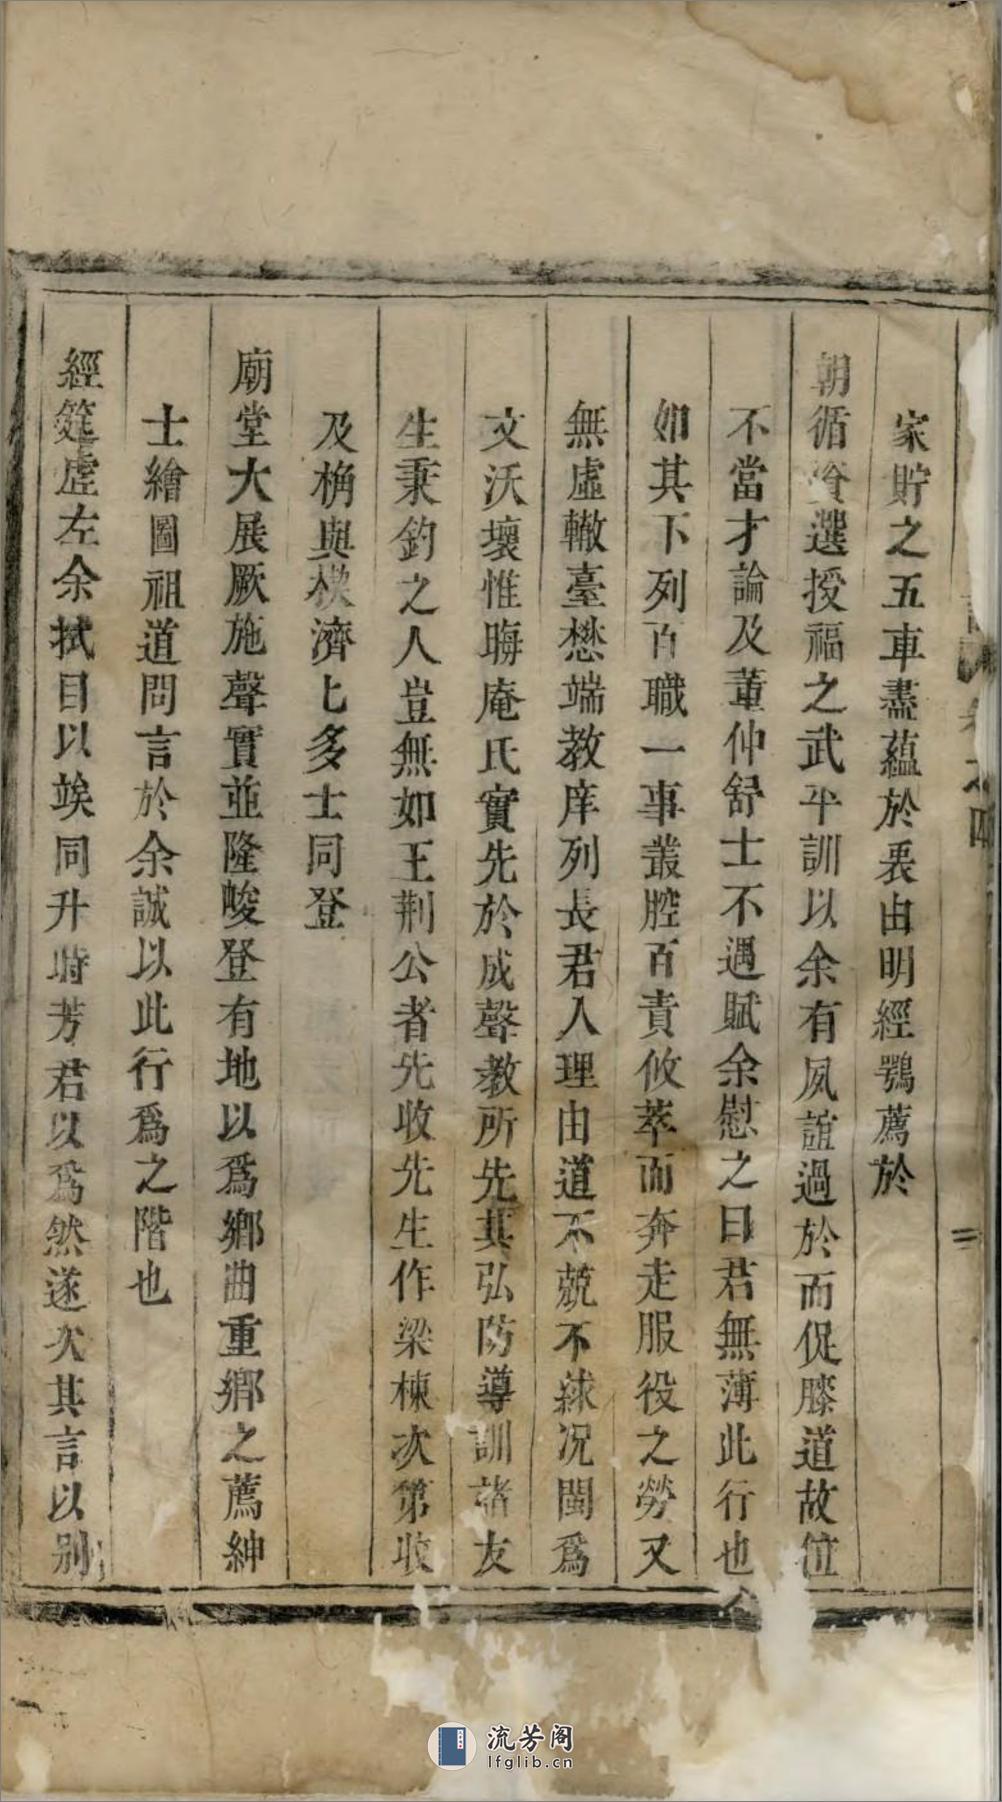 家貯之五車盡蘊於裏由明經鶚薦於
朝循資選授福之武平訓以余有夙誼過於而促膝道故位
不當才論及董仲舒士不遇賦余慰之曰君無薄此行也
如其下列百職一事叢脞百責攸萃而奔走服役之勞又
無虛轍臺懋端教庠列長君人理由道不兢不絿况閩爲
文沃壤惟晦庵氏實先於成聲教所先其弘防導訓諸友
生秉鈞之人豈無如王荆公者先收先生作梁棟次第收
及桷與榱濟七多士同登
廟堂大展厥施聲實並隆畯登有地以爲鄉曲重鄉之薦紳
士繪圖祖道問言於余誠以此行爲之階也
經筵虛左余拭目以竢同升時芳君以爲然遂次其言以别
卷之四
二
流芳阁
lfglib.cn